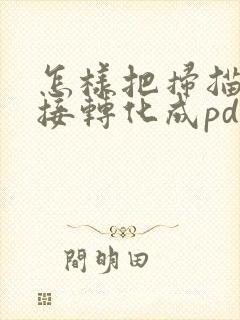 怎樣把掃描
接轉化成pd
閆明田